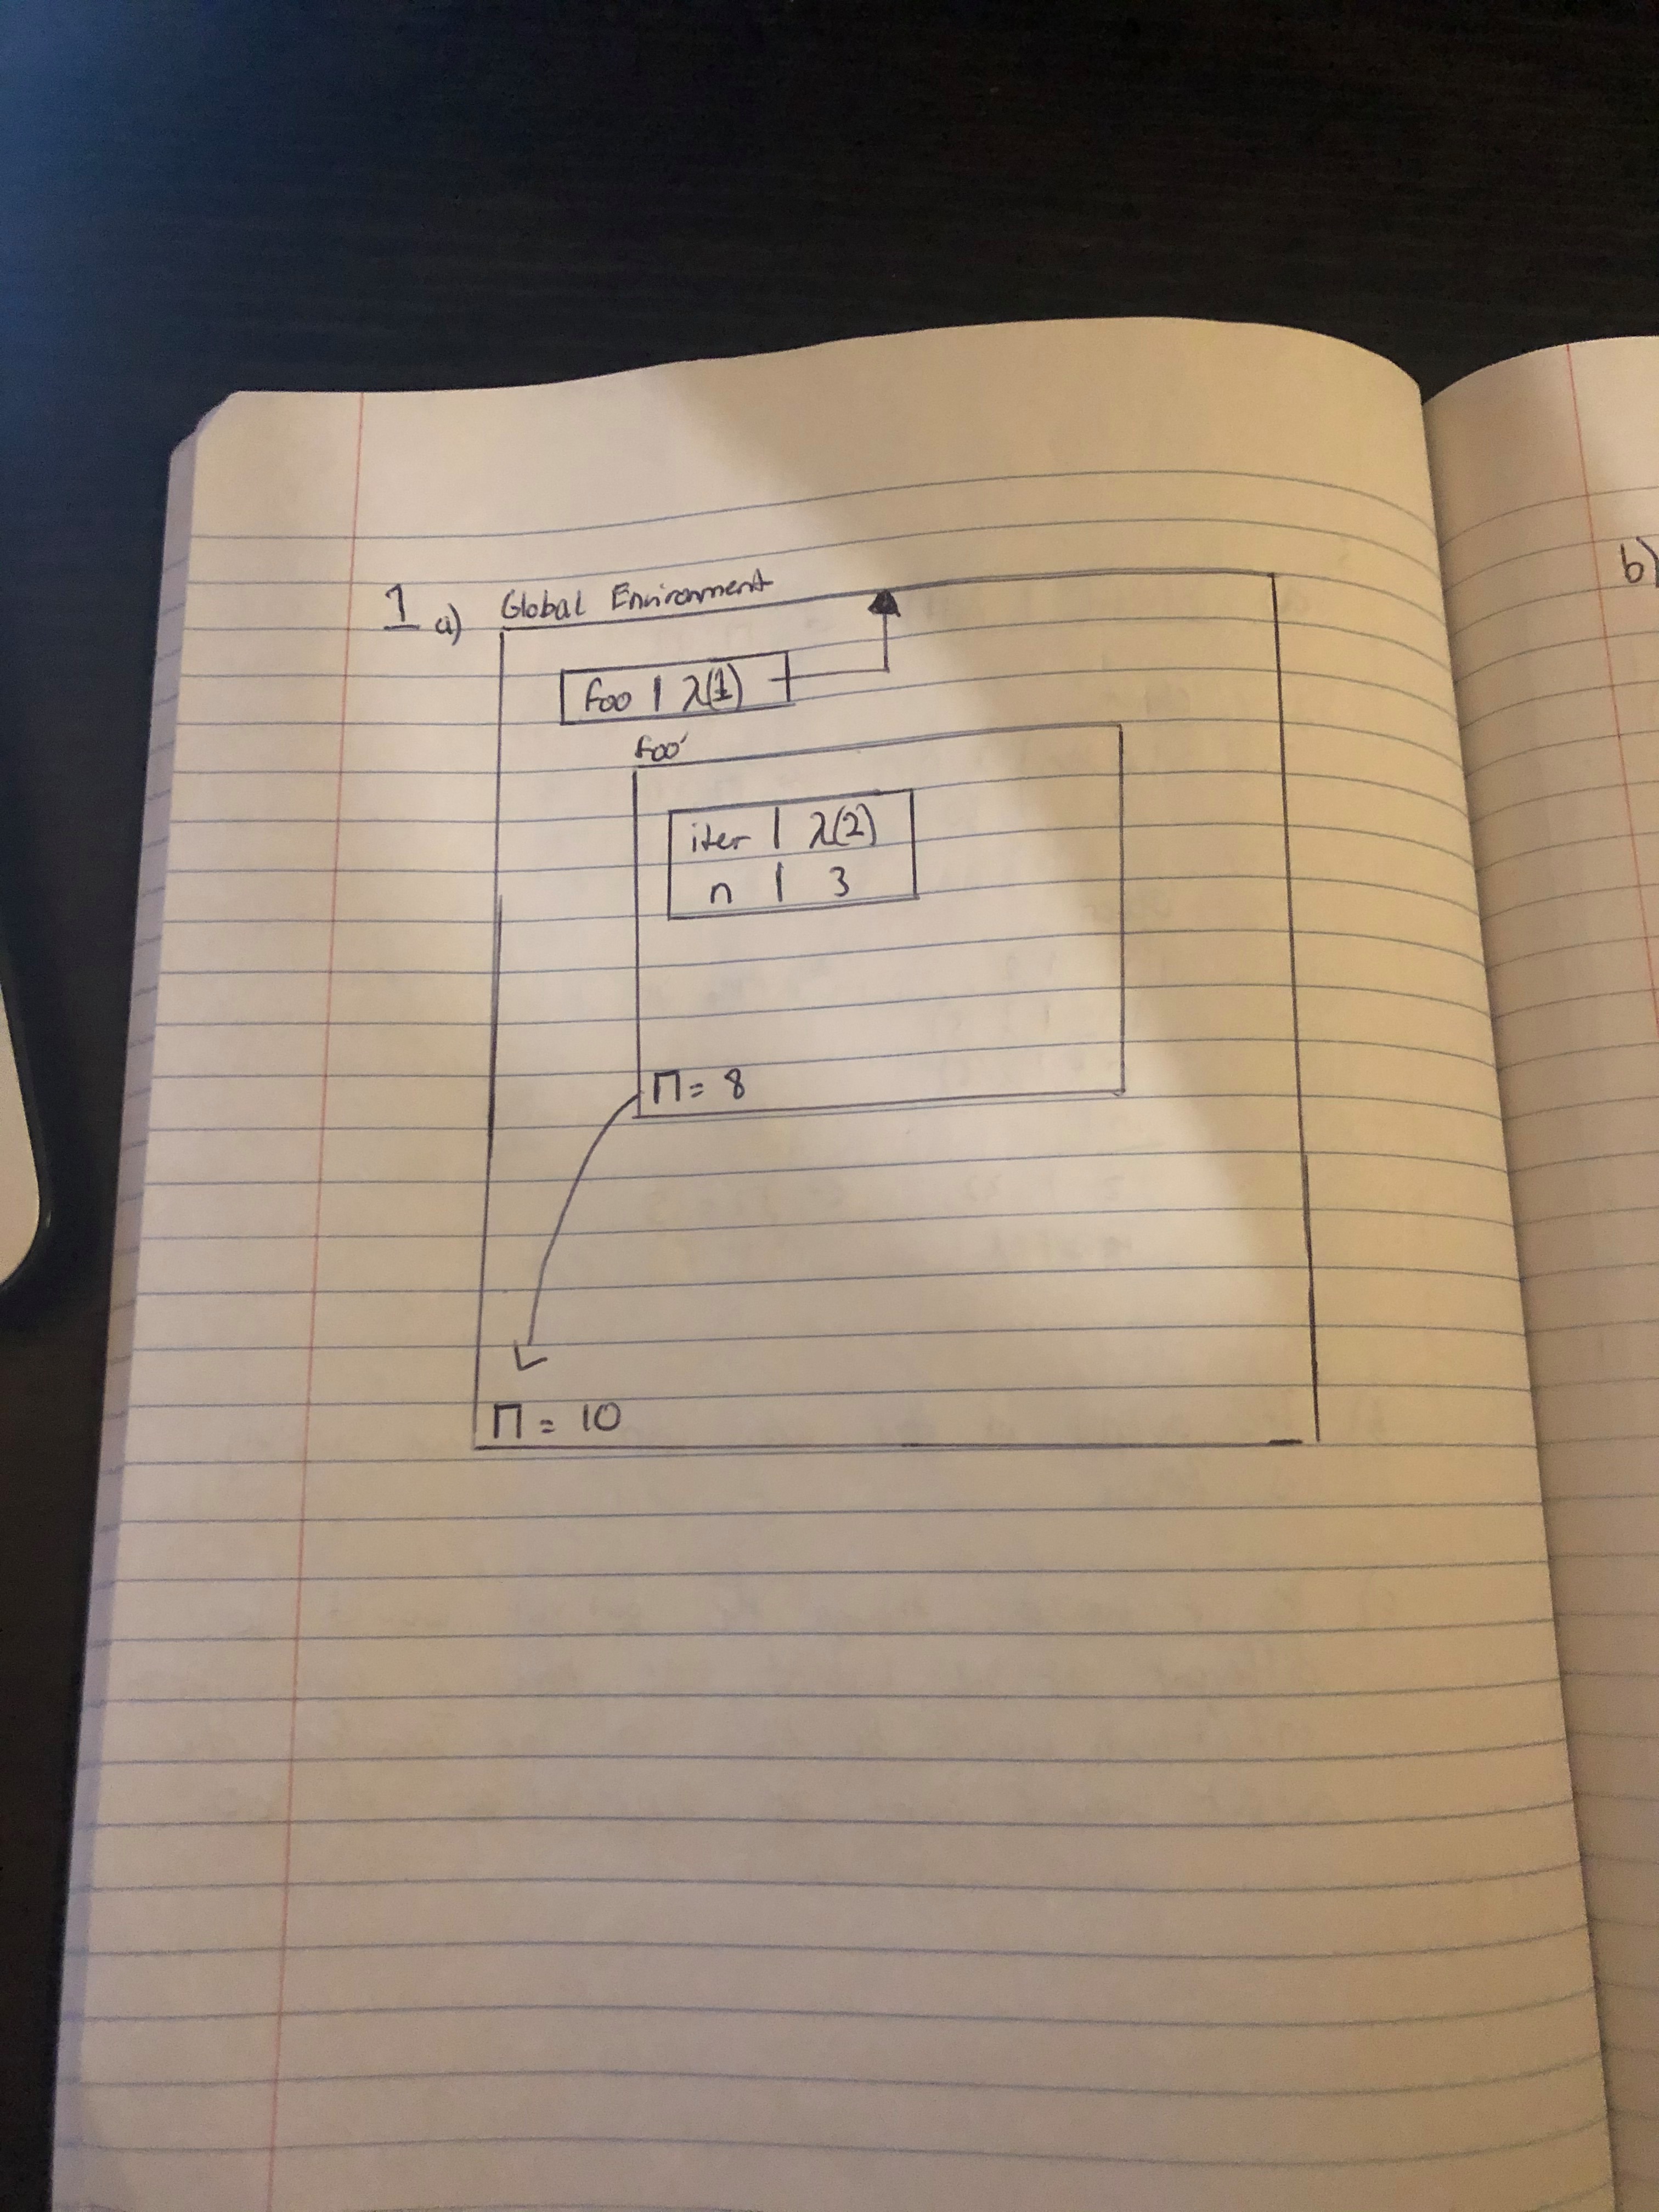 1 a) Global Environment
foo | λ(1)
foo'
iter | λ(2)
n | 3
Π = 8
Π = 10
b)